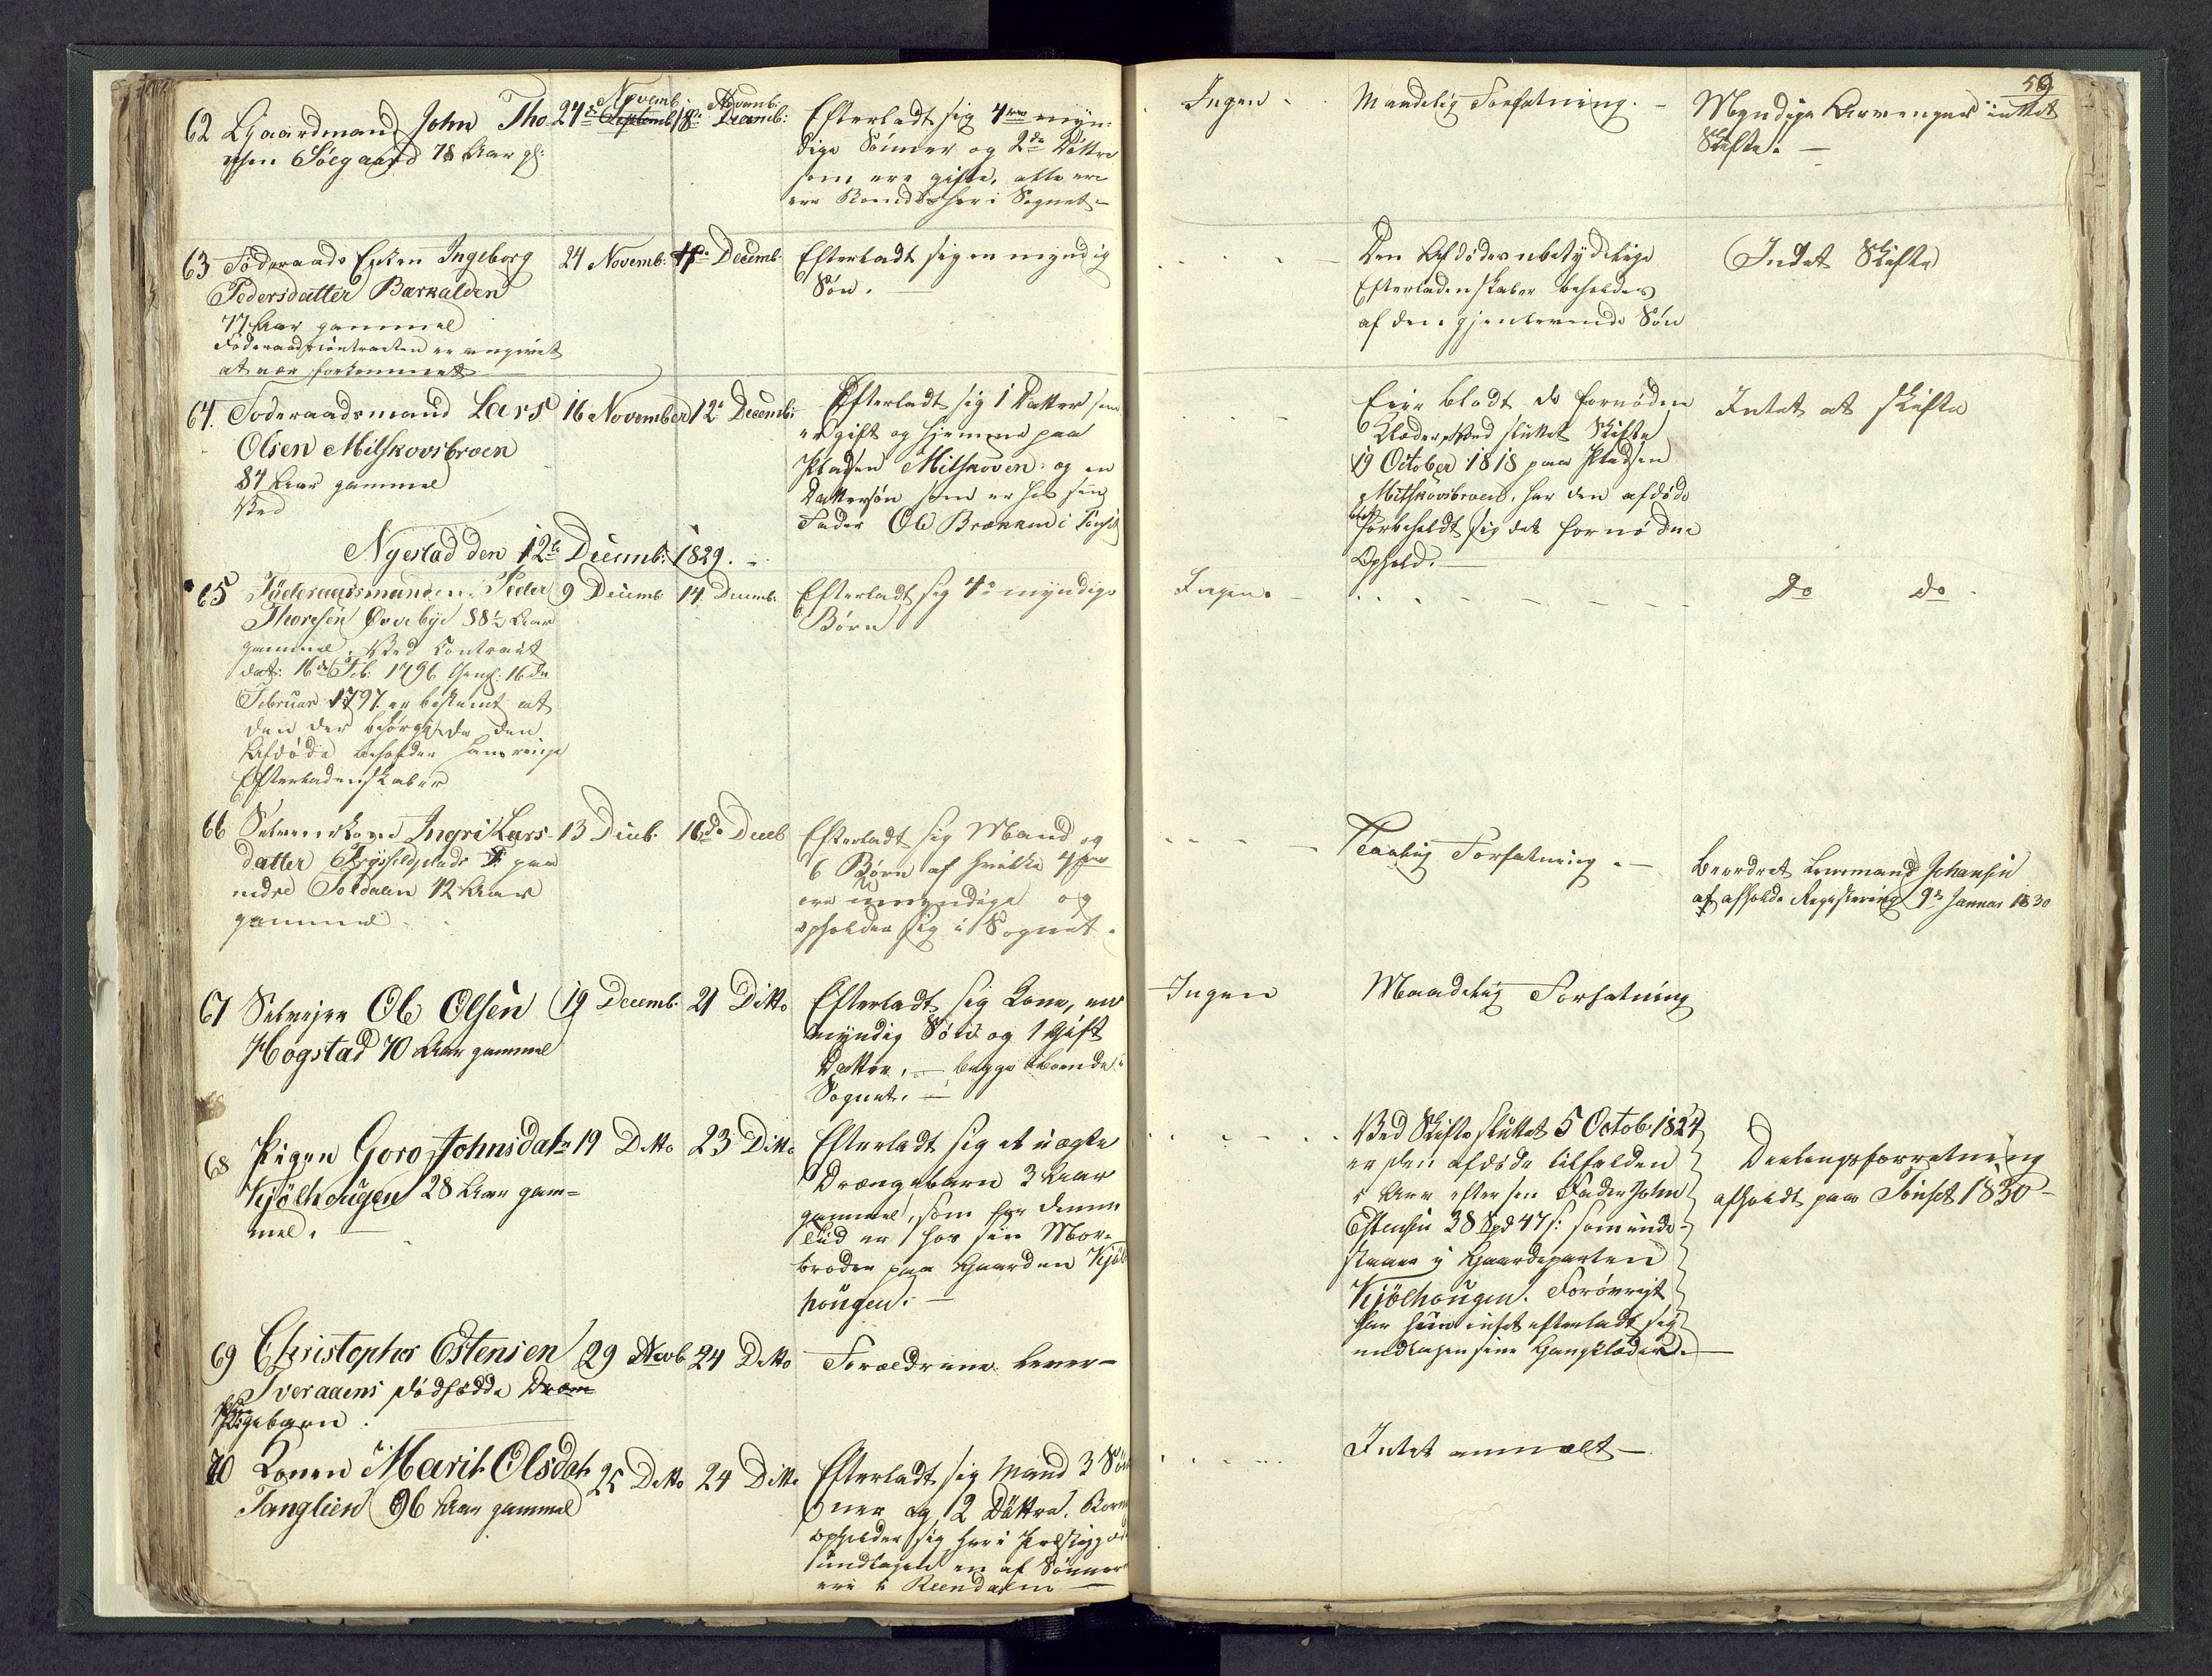 59
62 Gaardmand John Tho-
sen Söegaard 78 Aar gl:
Novemb:
24de Septemb:
Novemb:
18de Decemb:
Efterladt sig 4re myn-
dige Sønner og 2de Døttre
som ere gifte, alle ere
ere Boende her i Sognet.-
Ingen -
Maadelig Forfatning. -
Myndige Arvinger intet
Skifte. -
63 Föderaads Enken Ingeborg
Pedersdatter Barkalden
77 Aar gammel
Föderaadscontracten er angivet
at være forkommet
24 Novemb:
4de Decemb:
Efterladt sig en myndig
Søn.
Den Afdødes ubetydelige
Efterladenskaber beholdes
af den gjenlevende Søn
Intet Skifte
64. Foderaadsmand Lars
Olsen Mitskovsbroen
84 Aar gammel
Ved
16 November
12te Decemb:
Efterladt sig 1 Datter som
er gift og hjemme paa
Pladsen Mitskoven og en
Dattersøn som er hos sin
Fader Ole Brækken i Tönset
Eier blodt de fornødne
Klæder, Ved sluttet Skifte
19 October 1818 paa Pladsen
Mitskovsbroen, har den afdøde
forbeholdt sig det fornødne
Ophold. -
Intet at skifte
Nyestad den 12te Decemb: 1829. -
65 Föderaadsmanden Peder
Thoresen Øverbye 88½ Aar
gammel. Ved Contract
dat: 16de Feb: 1796 16de
Februar 1797 er bestemt at
den der besørgede den
Afdøde beholder hans ringe
Efterladenskaber
9 Decemb
14 Decemb:
Efterladt sig 4re myndige
Børn
Ingen.
Do Do
66 Selveierkone Ingri Lars-
datter paa
nedre Toldalen 42 Aar
gammel
13 Decb.
16de Decb
Efterladt sig Mand og
6 Børn af hvilke 4re
ere umyndige og
opholder sig i Sognet.
Taalig Forfatning. -
Beordret Lensmand Johansen
at afholde Registrering 9de Januar 1830
67 Selveier Ole Olsen
Hogstad 70 Aar gammel
19 Decemb.
21 Ditto
Efterladt sig Kone, en
myndig Søn og 1 gift
Datter. - begge boende i
Sognet. -
Ingen
Maadelig Forfatning
68 Pigen Goro Johnsdatr
Kjölhougen 28 Aar gam-
mel. -
19 Ditto
23 Ditto
Efterladt sig et uægte
Drængebarn 3 Aar
gammel, som for denne
Tid er hos sin Mor-
broder paa Gaarden Kjöl
hougen. -
Ved Skifte sluttet 5 Octob 1824
er den afdøde tilfalden
i Arv efter sin Fader John
Estensen 38 Spd 47 s: som inde-
staaer i Gaardeparten
Kjölhougen. Forøvrigt
har hun intet efterladt sig
undtagen sine Gangklæder. -
Deelingsforretning
afholdt paa Tönset 1830 -
69 Christopher Estensen
Tveraaens dödfødde Dræn
Pigebarn.
29 Novb
24 Ditto
Forældrene lever -
70 Konen Marit Olsdatr
Tanglien 96 Aar gammel
25 Ditto
24 Ditto
Efterladt sig Mand 3 Søn
ner og 2 Døttre. Børnene
opholder sig her i Præstegjæld
undtagen en af Sønner
ere i Reendalen -
Intet anmeldt -